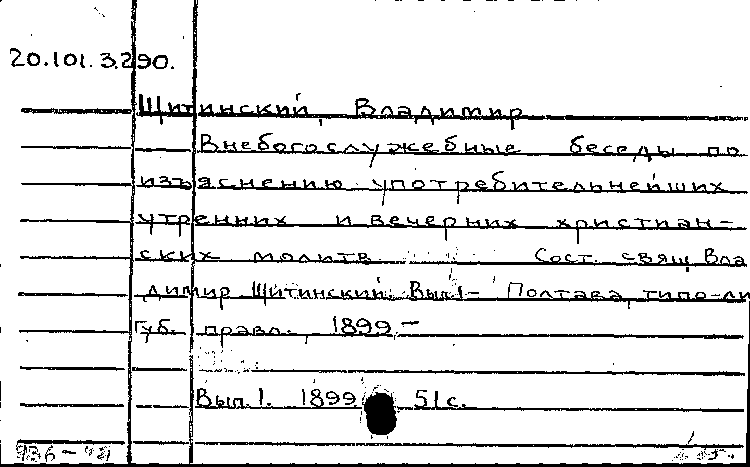 20.101.3.290.
Щитинский, Владимир
Внебогослужебные беседы по
изъяснению употребительнейших
утренних и вечерних христиан-
ских молитв Сост. свящ. Вла
димир Щитинский. Вып. 1- Полтава, типо-ли
Губ. правл., 1899,-
Вып. 1. 1899 51 с.